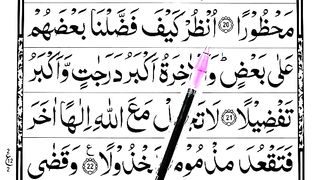 مَحْظُوْرًا ﴿۲۰﴾ اُنْظُرْ كَيْفَ فَضَّلْنَا بَعْضَهُمْ
عَلٰى بَعْضٍ ؕ وَلَلْاٰخِرَةُ اَكْبَرُ دَرَجٰتٍ وَّاَكْبَرُ
تَفْضِيْلًا ﴿۲۱﴾ لَا مَعَ اللّٰهِ اِلٰهًا اٰخَرَ
فَتَقْعُدَ ﴿۲۲﴾ وَقَضٰى